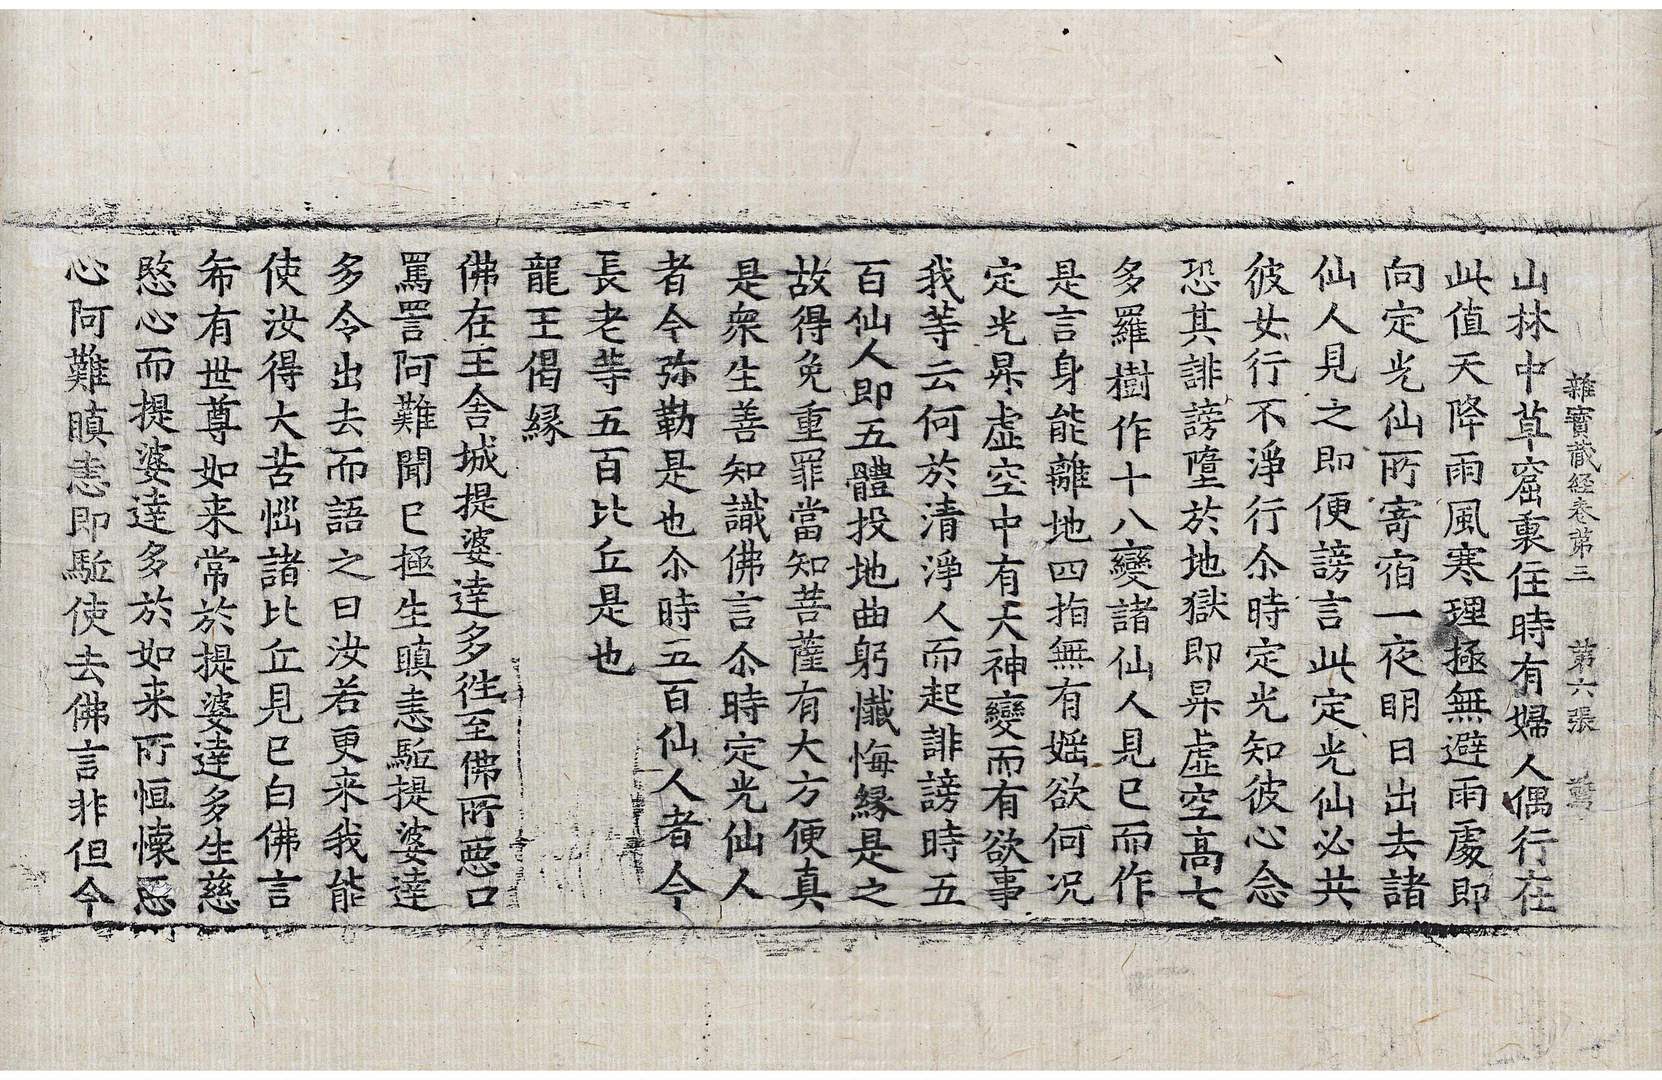 雜寶蔵経卷第三 第六張 驚
山林中草窟裏住時有婦人偶行在
此值天降雨風寒理極無避雨處即
向定光仙所寄宿一夜明日出去諸
仙人見之即便謗言此定光仙必共
彼女行不淨行尒時定光知彼心念
恐其誹謗墮於地獄即昇虛空高七
多羅樹作十八變諸仙人見已而作
是言身能離地四指無有婬欲何况
定光昇虛空中有大神變而有欲事
我等云何於清淨人而起誹謗時五
百仙人即五體投地曲躬懺悔縁是之
故得免重罪當知菩薩有大方便真
是衆生善知識佛言尒時定光仙人
者今弥勒是也尒時五百仙人者今
長老等五百比丘是也
龍王偈縁
佛在王舍城提婆達多徃至佛所惡口
罵詈阿難聞已極生瞋恚駈提婆達
多令出去而語之曰汝若更来我能
使汝得大苦惱諸比丘見已白佛言
希有世尊如来常於提婆達多生慈
愍心而提婆達多於如来所恒懷惡
心阿難瞋恚即駈使去佛言非但今